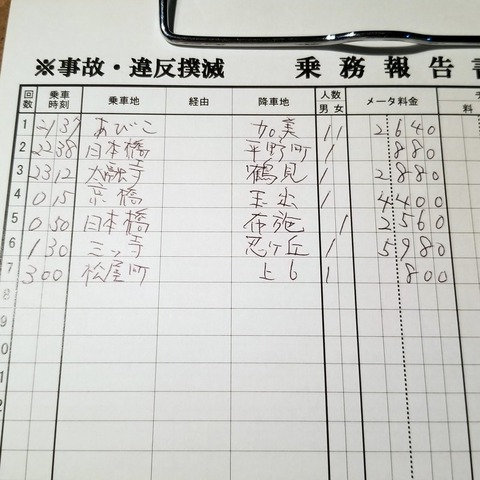 ※事故・違反撲滅 乗務報告書
回数 乗車時刻 乗車地 経由 降車地 人数 男 女 メータ料金 料
1 21 37 あびこ 加美 1 1 2640
2 22 38 日本橋 平野町 1 880
3 23 12 太融寺 鶴見 1 2880
4 0 15 京橋 玉出 1 4400
5 0 50 日本橋 布施 1 2560
6 1 30 三ッ寺 忍ヶ丘 1 5980
7 3 00 松屋町 上6 1 800
8
9
10
11
12